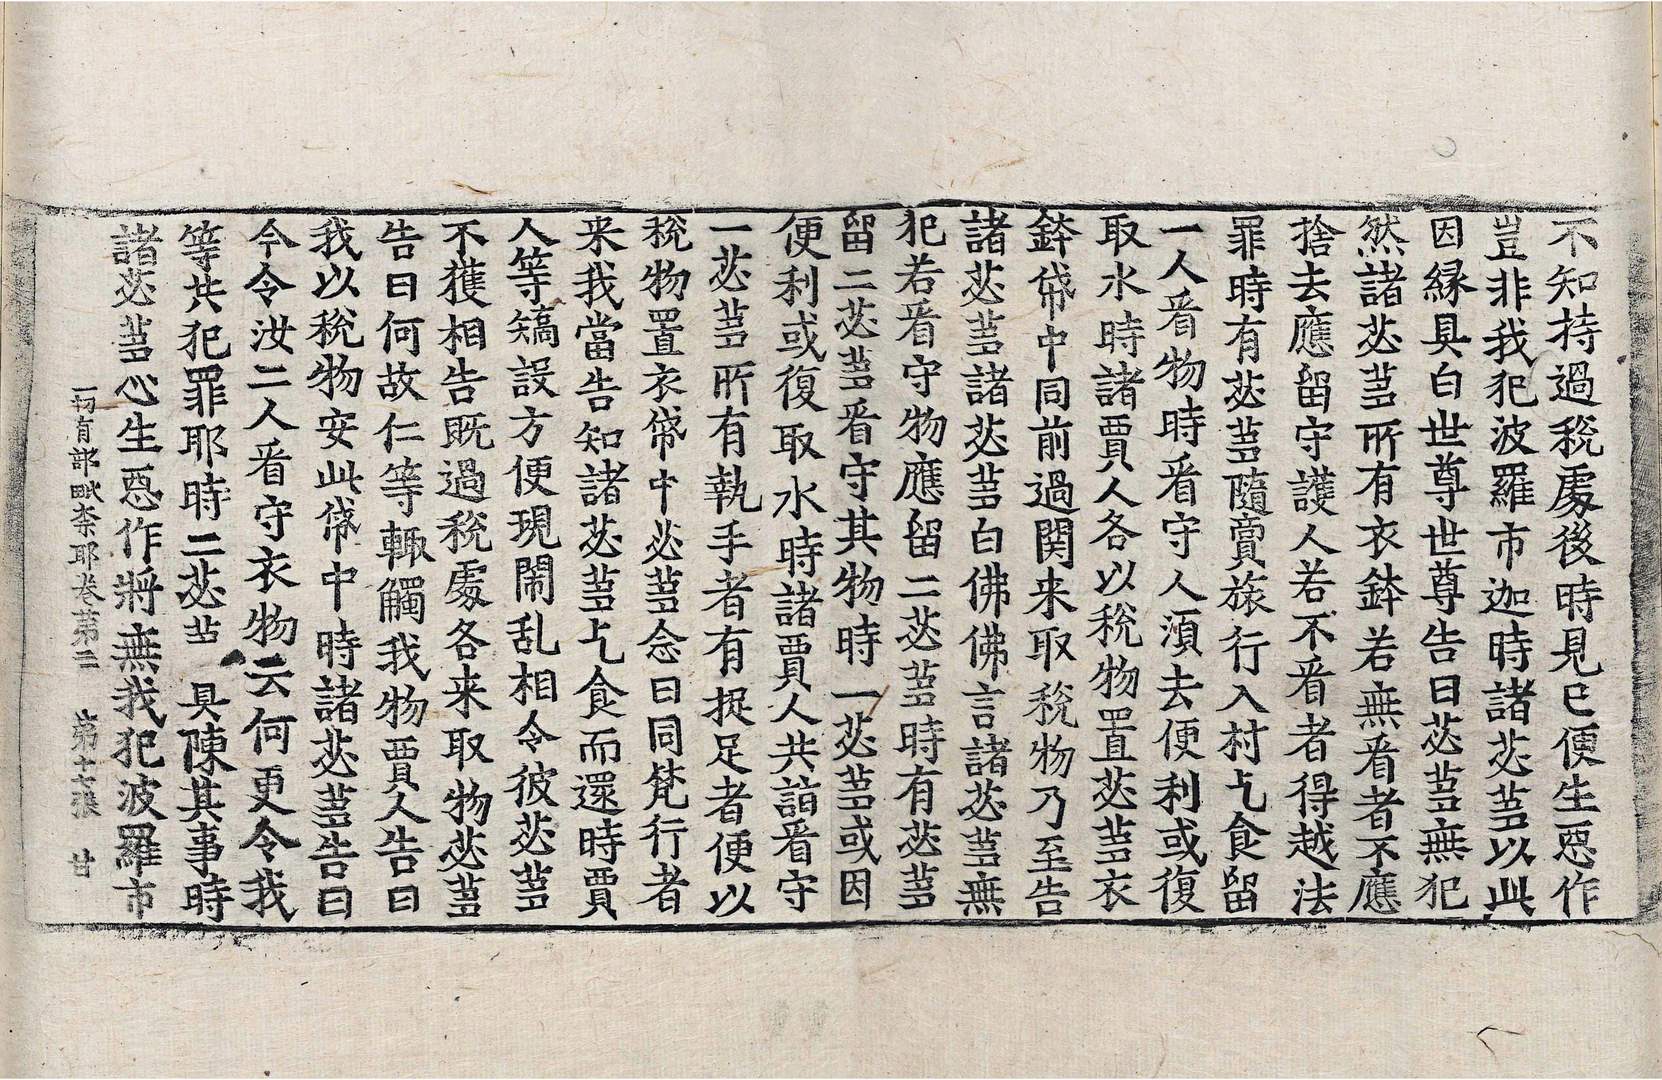 不知持過稅處後時見已便生惡作
豈非我犯波羅市迦時諸苾芻以此
因緣具白世尊世尊告曰苾芻無犯
然諸苾芻所有衣鉢若無看者不應
捨去應留守護人若不看者得越法
罪時有苾芻隨賣旅行入村乞食留
一人看物時看守人須去便利或復
取水時諸賈人各以稅物置苾芻衣
鉢帒中同前過関来取稅物乃至告
諸苾芻諸苾芻白佛佛言諸苾芻無
犯若看守物應留二苾芻時有苾芻
留二苾芻看守其物時一苾芻或因
便利或復取水時諸賈人共詣看守
一苾芻所有執手者有捉足者便以
稅物置衣帒中苾芻念曰同梵行者
来我當告知諸苾芻乞食而還時賈
人等矯設方便現鬧乱相令彼苾芻
不獲相告既過稅處各来取物苾芻
告曰何故仁等輒觸我物賈人告曰
我以稅物安此帒中時諸苾芻告曰
今令汝二人看守衣物云何更令我
等共犯罪耶時二苾芻具陳其事時
諸苾芻心生惡作將無我犯波羅市
一切有部毗奈耶卷第二 第十七張 甘